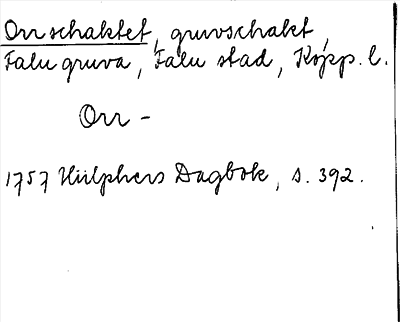 Orrschaktet, gruvschakt,
Falu gruva, Falu stad, Kopp. l.
Orr -
1757 Hülphers Dagbok, s. 392.